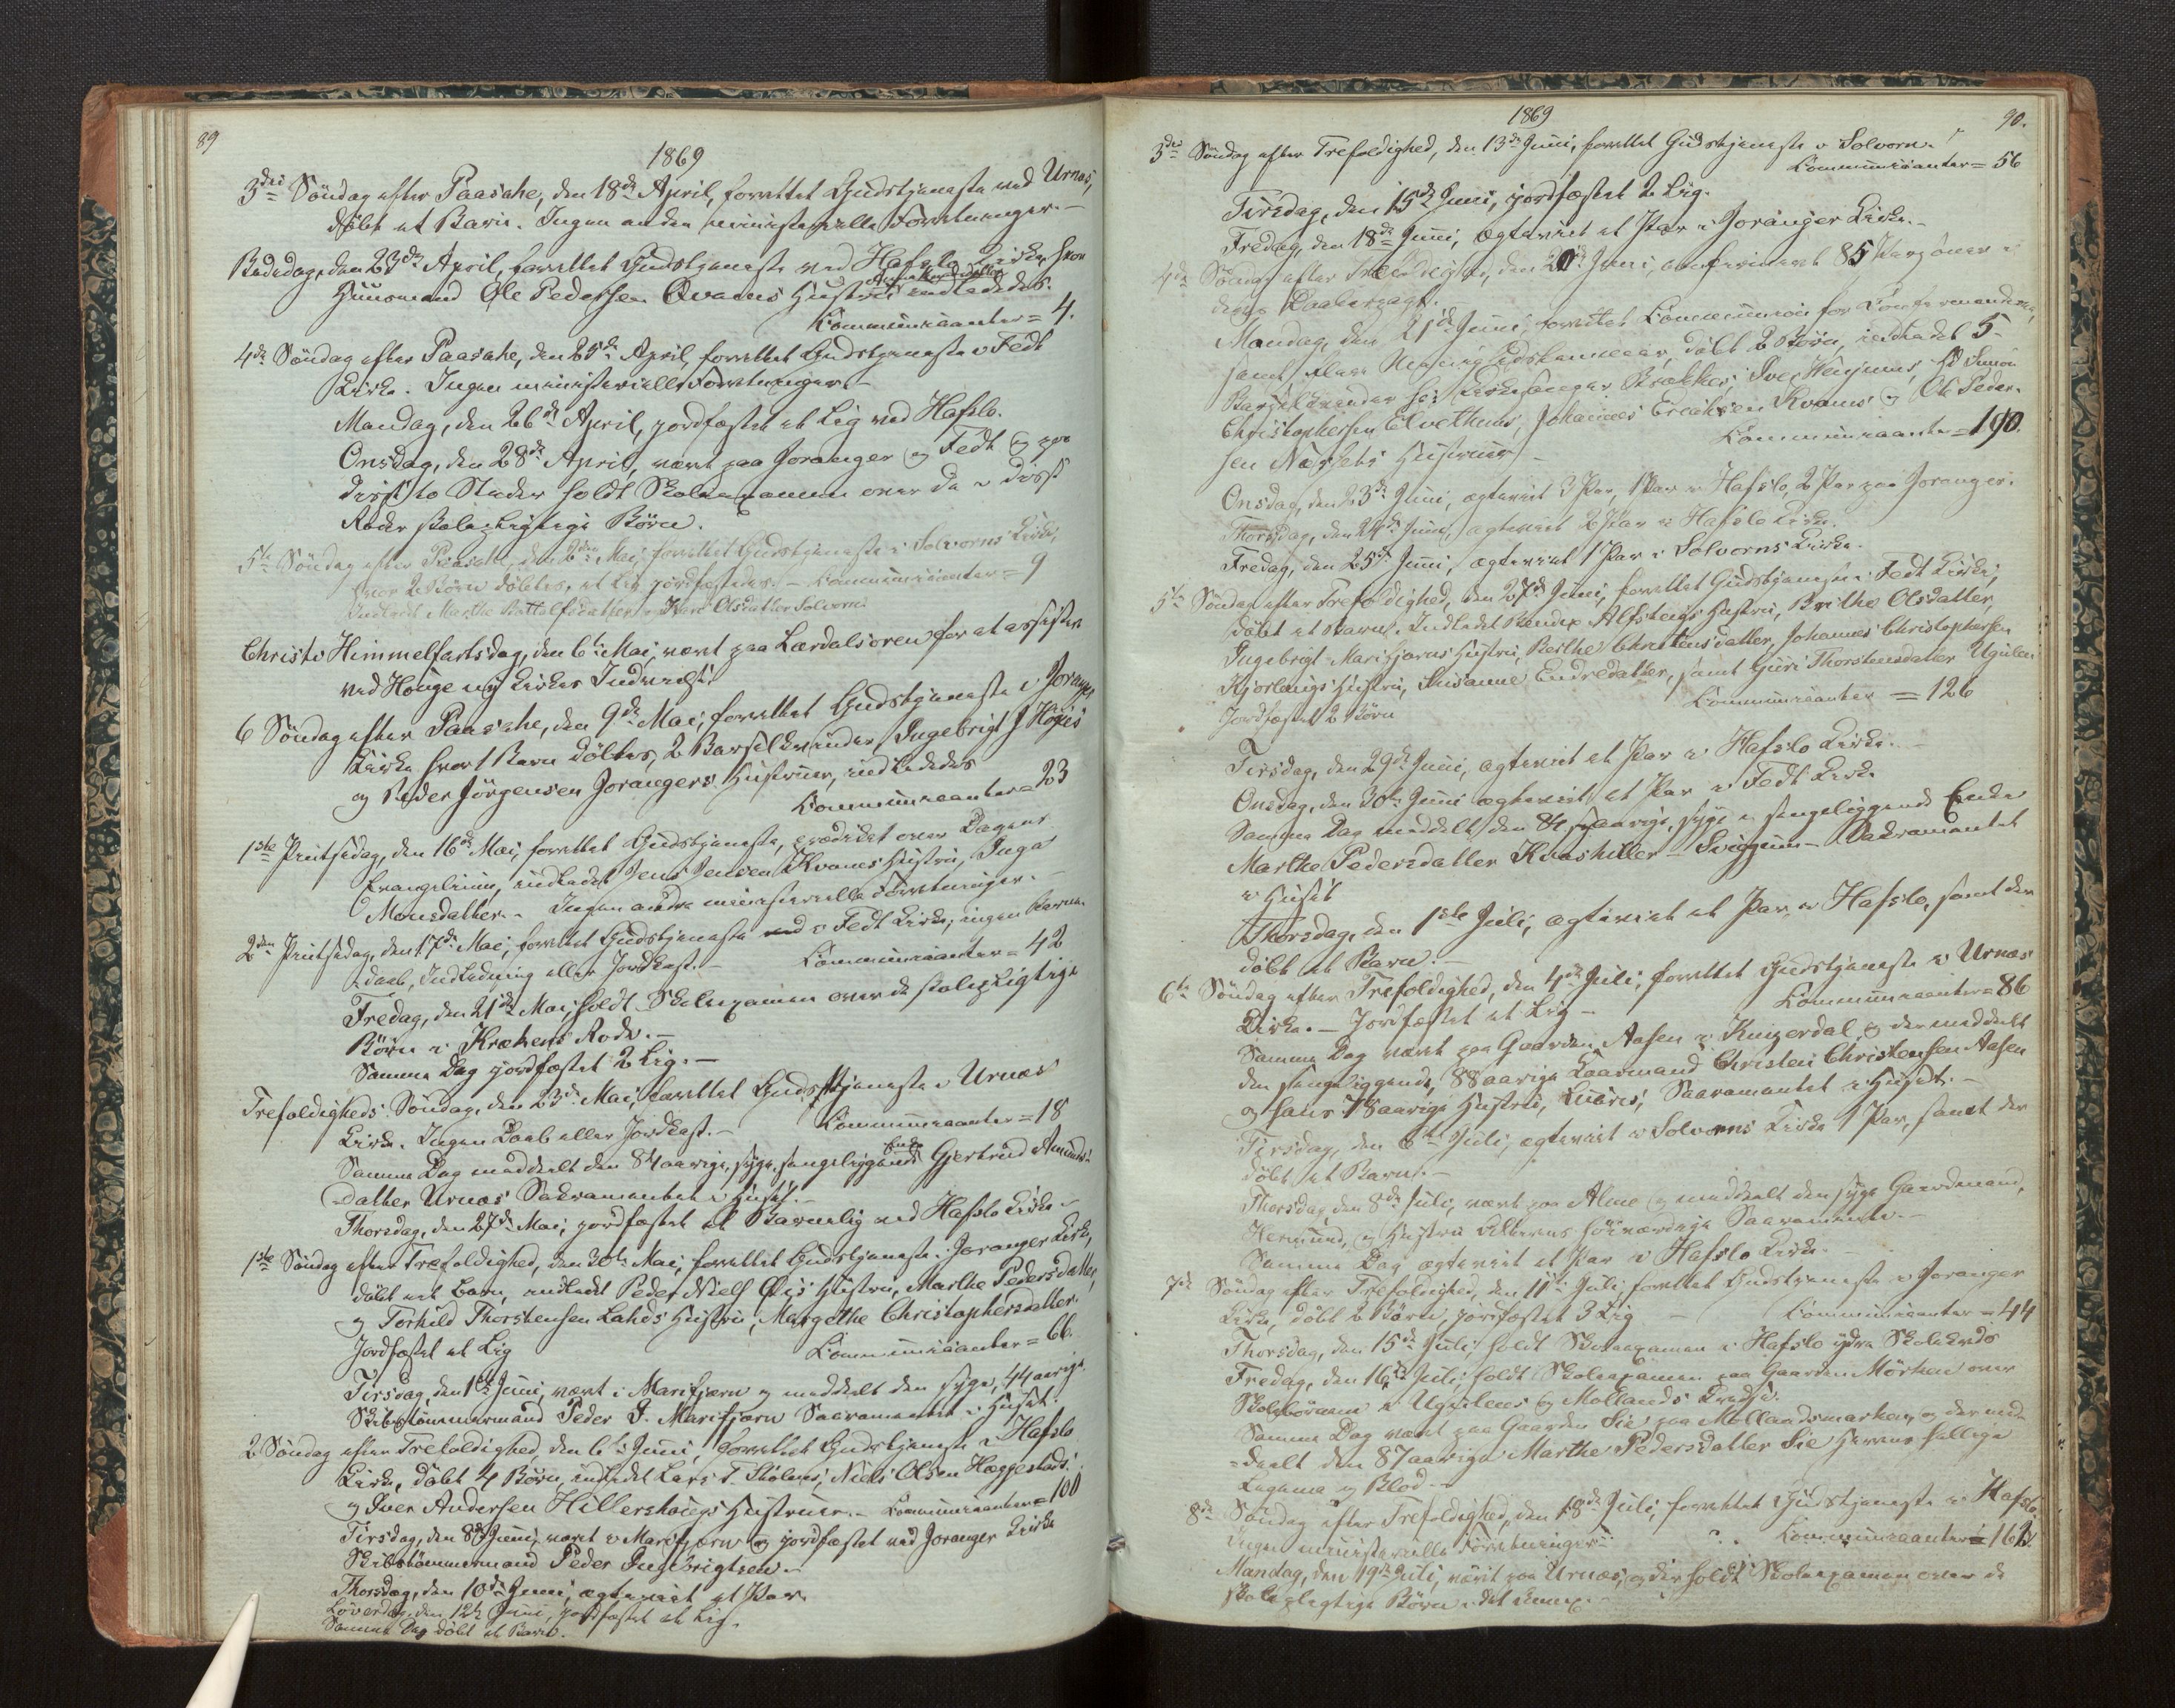 89
1869
3die Søndag efter Paaske, den 18de April, forrettet Gudstjeneste ved Urnæs,
døbt et Barn. Ingen anden ministerielle Forretninger.-
Bededag, den 23de April, forrettet Gudstjeneste ved Hafslo Kirke, hvor
Huusmand Ole Pedersen Qvams Hustru indlededes.
Communicanter = 4.
4de Søndag efter Paaske, den 25de April, forrettet Gudstjeneste i Fedt
Kirke. Ingen ministerielle Forretninger.-
Mandag, den 26de April, jordfæstet et Lig ved Hafslo.
Onsdag, den 28de April, været paa Joranger og Fedt og paa
disse to Steder holdt Skoleexamen over de i disse
Roder skolepligtige Børn.
5te Søndag efter Paaske, den 2den Mai, forrettet Gudstjeneste i Solvorns Kirke,
hvor 2 Børn døbtes, et Lig jordfæstedes.- Communicanter = 9
Indledt Marthe Olsdatter Solvorn
Christi Himmelfartsdag, den 6te Mai, været paa Lærdalsøren for at assistere
ved Hauge ny Kirkes Indvielse.
6 Søndag efter Paaske, den 9de Mai, forrettet Gudstjeneste i Joranger
Kirke hvor 1 Barn døbtes, 2 Barselkvinder, Ingebrigt J Højis
og Peder Jørgensen Jorangers Hustruer, indlededes
Communicanter = 23
1ste Pintsedag, den 16de Mai, forrettet Gudstjeneste, prædiket over Dagens
Evangelium, indledet Jens Jensen Kvames Hustru, Inga
Monsdatter.- Ingen andre ministerielle Forretninger.-
2den Pintsedag, den 17de Mai, forrettet Gudstjeneste i Fedt Kirke, ingen Barne-
daab, Indledning eller Jordkast.- Communicanter = 42
Fredag, den 21de Mai, holdt Skoleexamen over de skolepligtige
Børn i Kræhens Rode.-
Samme Dag jordfæstet 2 Lig.-
Trefoldigheds Søndag, den 23de Mai, forrettet Gudstjeneste i Urnæs
Kirke. Ingen Daab eller Jordkast.- Communicanter = 18
Samme Dag meddeelt den 84 aarige, syge, sengeliggende Enke Gjertrud Amunds-
datter Urnæs Sakramentet i Huset.-
Thorsdag, den 27de Mai, jordfæstet et Barnelig ved Hafslo Kirke.-
1ste Søndag efter Trefoldighed, den 30te Mai, forrettet Gudstjeneste i Joranger Kirke,
døbt eet Barn, indledt Peder Niels Øis Hustru, Marthe Pedersdatter,
og Torkild Thorstensen Lahds Hustru, Margethe Christophersdatter.
Jordfæstet et Lig Communicanter = 66.
Tirsdag, den 1ste Juni, været i Marifjæren og meddeelt den syge, 44 aarige
Skibstømmermand Peder I. Marifjæren Sacramentet i Huset.
2 Søndag efter Trefoldighed, den 6te Juni, forrettet Gudstjeneste i Hafslo
Kirke, døbt 4 Børn, indledet Lars T. Skølens, Niels Olsen Hæggestads
og Iver Andersen Hillershaugs Hustruer.- Communicanter = 100
Tirsdag, den 8de Juni, været i Marifjæren og jordfæstet ved Joranger Kirke
Skibstømmermand Peder Ingebrigtsen.-
Thorsdag, den 10de Juni, ægteviet et Par.
Løverdag, den 12te Juni, jordfæstet et Lig.
Samme Dag døbt et Barn.
1869
90.
3die Søndag efter Trefoldighed, den 13de Juni, forrettet Gudstjeneste i Solvorn.
Communicanter = 56
Tirsdag, den 15de Juni, jordfæstet 2 Lig.
Fredag, den 18de Juni, ægteviet et Par i Joranger Kirke.-
4de Søndag efter Trefoldighed, den 20de Juni, confirmeret 85 Personer i
deres Daabspagt.
Mandag, den 21de Juni, forrettet Communion for Confirmanderne,
samt flere Menighedslemmer, døbt 2 Børn, indledet 5
Barselkvinder
Christophersen Elvethuns, Johannes Erichsen Kvams og Ole Peder-
sen Næssets Hustruer.-
Communicanter = 190.
Onsdag, den 23de Juni, ægteviet 3 Par, 1 Par i Hafslo, 2 Par paa Joranger.
Thorsdag, den 24de Juni, ægteviet 2 Par i Hafslo Kirke.
Fredag, den 25de Juni, ægteviet 1 Par i Solvorns Kirke.
5te Søndag efter Trefoldighed, den 27de Juni, forrettet Gudstjeneste i Fedt Kirke,
døbt et Barn. Indledet Alfstegs Hustru, Brithe Olsdatter,
Ingebrigt Marifjærens Hustru, Berthe Christensdatter, Johannes Christophersen
Kjørlaugs Hustru, Susanne Endredatter, samt Guri Thorstensdatter Ugulen
Jordfæstet 2 Børn Communicanter = 126
Tirsdag, den 29de Juni, ægteviet et Par i Hafslo Kirke.-
Onsdag, den 30te Juni ægteviet et Par i Fedt Kirke
Samme Dag meddeelt den 84 aarige, syge og sengeliggende Enke
Marthe Pedersdatter Kvashiller - Sviggum - Sakramentet
i Huset
Thorsdag, den 1ste Juli, ægteviet et Par i Hafslo, samt der
døbt et Barn.-
6te Søndag efter Trefoldighed, den 4de Juli, forrettet Gudstjeneste i Urnæs
Kirke.- Jordfæstet et Lig - Communicanter = 86
Samme Dag været paa Gaarden Aasen i Kinserdal og der meddeelt
den sengeliggende, 88 aarige Kaarmand Christen Christensen Aasen
og hans 78 aarige Hustru, Sacramentet i Huset.-
Tirsdag, den 6te Juli, ægteviet i Solvorns Kirke 1 Par, samt der
døbt et Barn.-
Thorsdag, den 8de Juli, været paa Alme og meddeelt den syge Gaardmand,
Hermund, og Hustru Alterens høiværdige Sacramente.-
Samme Dag ægteviet et Par i Hafslo Kirke.
7de Søndag efter Trefoldighed, den 11te Juli, forrettet Gudstjeneste i Joranger
Kirke, døbt 2 Børn, jordfæstet 3 Lig - Communicanter = 44
Thorsdag, den 15de Juli, holdt Skoleexamen i Hafslo ydre Skolekreds
Fredag, den 16de Juli, holdt Skoleexamen paa Gaarden Mørken over
Skolebørnene i Ugulens og Mollands Kreds.
Samme Dag været paa Gaarden Sie paa Mollandsmarken, og der med-
deelt den 87 aarige Marthe Pedersdatter Sie Herrens hellige
Legeme og Blod.-
8de Søndag efter Trefoldighed, den 18de Juli, forrettet Gudstjeneste i Hafslo.
Ingen ministerielle Forretninger. Communicanter = 162
Mandag, den 19de Juli, været paa Urnæs, og der holdt Skoleexamen over de
skolepligtige Børn i det Annex.-